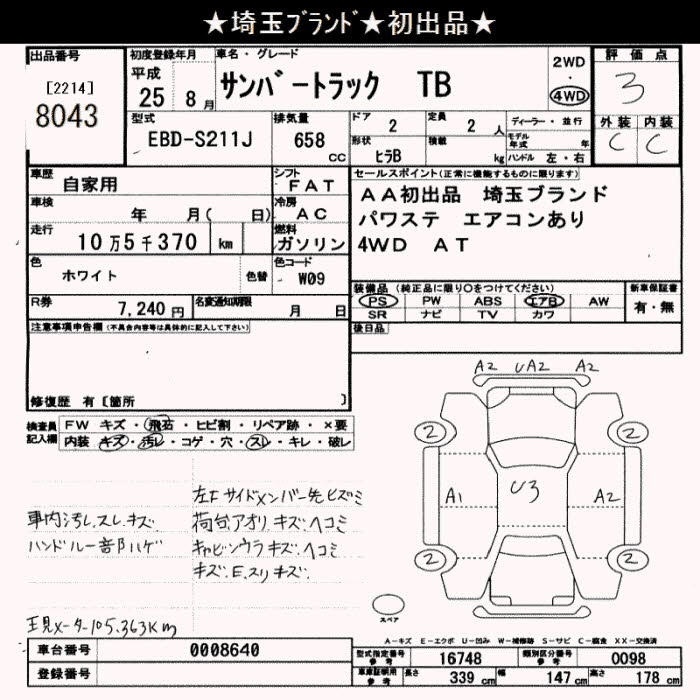 ★埼玉ﾌﾞﾗﾝﾄﾞ★初出品★
出品番号
[2214]
8043
初度登録年月
平成
25 8月
車名・グレード
サンバートラック TB
2WD
・
4WD
評価点
3
外装 内装
C C
型式
EBD-S211J
排気量
658
cc
ドア
2
定員
2 人
形状
ヒラB
積載
kg
ディーラー・並行
モデル年式
年
ハンドル 左・右
車歴
自家用
シフト
FAT
車検
年 月( 日)
冷房
AC
走行
10万5千370 km
燃料
ガソリン
色
ホワイト
色替
色コード
W09
R券
7,240円
名変通知期限
月 日
セールスポイント(正常に機能するものに限ります)
AA初出品 埼玉ブランド
パワステ エアコンあり
4WD AT
装備品(純正品に限り○をつけてください)
PS PW ABS エアB AW
SR ナビ TV カワ
新車保証書
有・無
後日品
注意事項申告欄(不具合内容等は具体的に記入して下さい)
修復歴 有〔箇所 〕
検査員記入欄
FW キズ・飛石・ヒビ割・リペア跡・×要
内装 キズ・汚レ・コゲ・穴・スレ・キレ・破レ
左Fサイドメンバー先ヒズミ
車内汚レ、スレ、キズ
荷台アオリ キズ、ヘコミ
ハンドル一部ハゲ
キャビンウラ キズ、ヘコミ
キズ、E、スリキズ
現メーター105,363Km
A2 UA2 A2
2 2
A1 U3 A2
2 2
スペア
A-キズ E-エクボ U-凹み W-補修跡 S-サビ C-腐食 XX-交換済
車台番号
0008640
登録番号
型式指定番号
参考
16748
類別区分番号
参考
0098
車庫証明用
参考
長さ
339 cm
幅
147 cm
高さ
178 cm